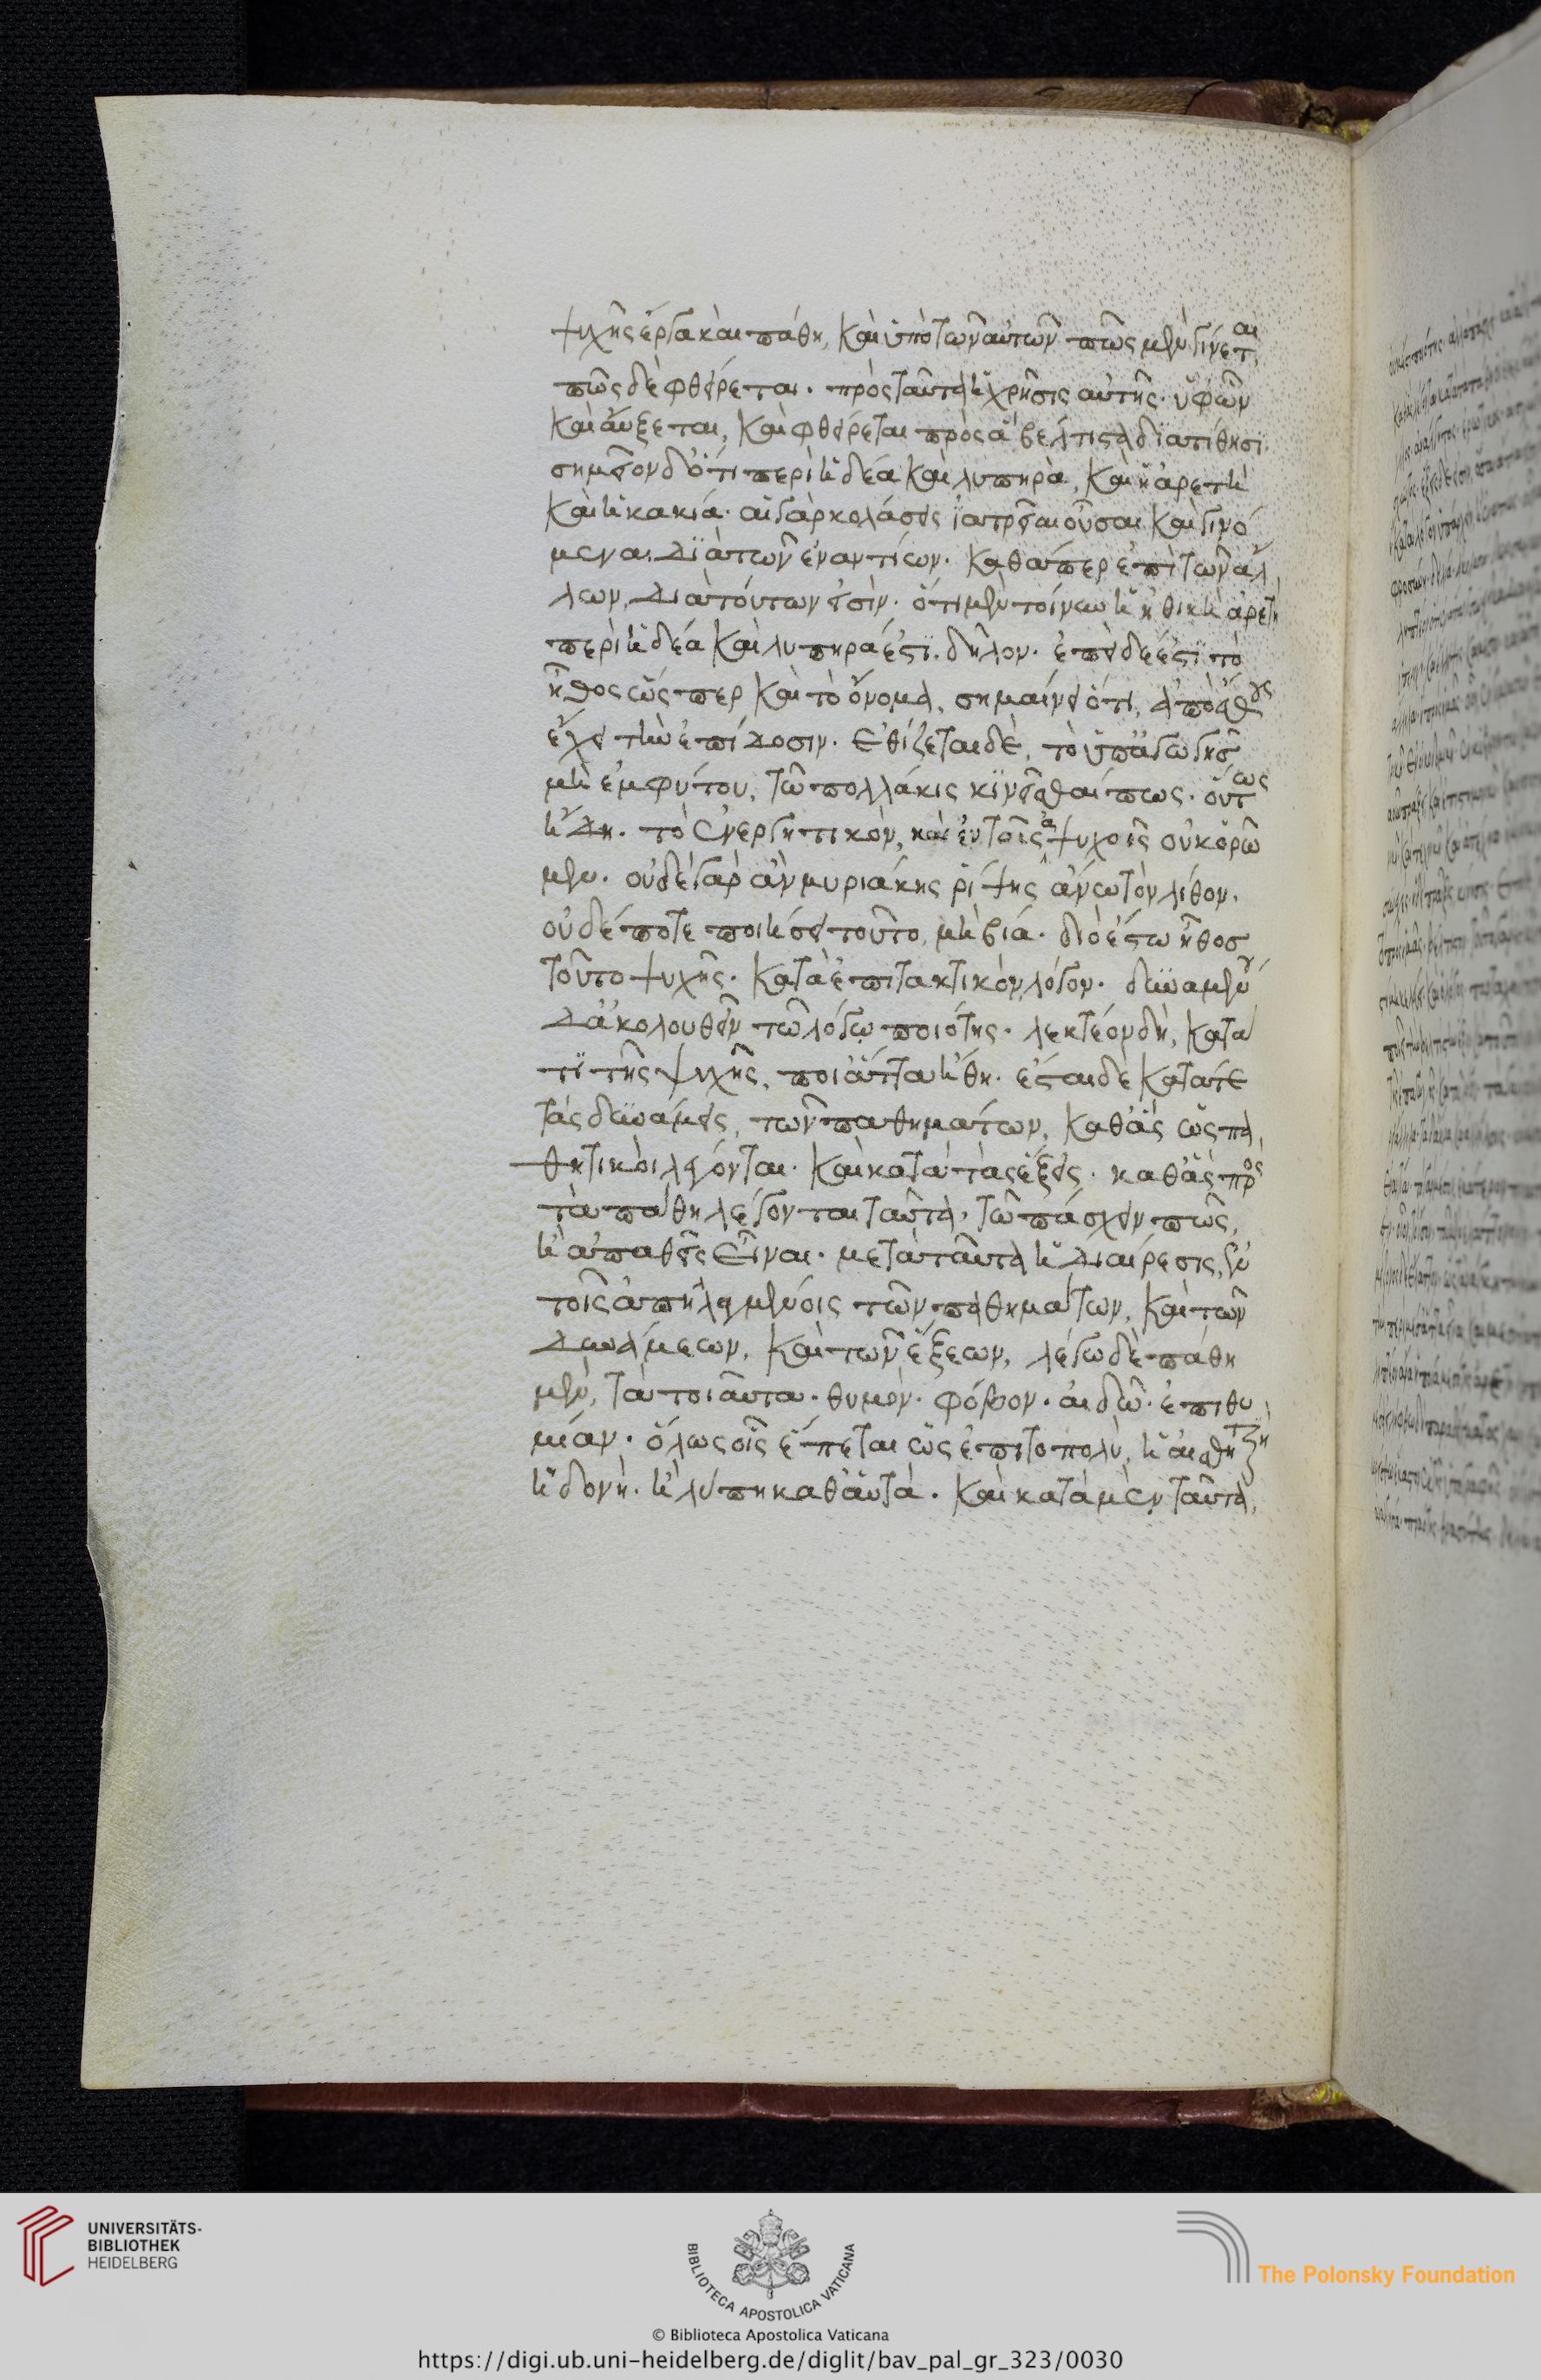 ψυχῆς ἔργα καὶ πάθη, καὶ ὑπὸ τῶν αὐτῶν πῶς μὲν γίνεται
πῶς δὲ φθείρεται. πρὸς ταῦτα ἡ χρῆσις αὐτῆς. ὑφ' ὧν
καὶ αὔξεται, καὶ φθείρεται πρὸς ἃ βέλτιστα διατίθησι.
σημεῖον δ' ὅτι περὶ ἡδέα καὶ λυπηρὰ, καὶ ἡ ἀρετὴ
καὶ ἡ κακία. αἱ γὰρ κολάσεις ἰατρεῖαι οὖσαι καὶ γινό
μεναι διὰ τῶν ἐναντίων. καθάπερ ἐπὶ τῶν ἄλ
λων, διὰ τούτων εἰσὶν. ὅτι μὲν τοίνυν ἡ ἠθικὴ ἀρετὴ
περὶ ἡδέα καὶ λυπηρά ἐστι. δῆλον. ἐπεὶ δέ ἐστι τὸ
ἦθος ὥσπερ καὶ τὸ ὄνομα, σημαίνει ὅτι, ἀπὸ ἔθους
ἔχει τὴν ἐπίδοσιν. ἐθίζεται δὲ, τὸ ὑπ' ἀγωγῆς
μὴ ἐμφύτου, τῷ πολλάκις κινεῖσθαί πως. οὕτως
ἤδη. τὸ ἐνεργητικὸν, καὶ ἐν τοῖς ἀψύχοις οὐκ ὁρῶ
μεν. οὐδὲ γὰρ ἂν μυριάκης ῥίψης ἄνω τὸν λίθον.
οὐδέποτε ποιήσει τοῦτο, μὴ βία. διὸ ἔστω ἦθος
τοῦτο ψυχῆς. κατὰ ἐπιτακτικὸν λόγον. δυναμέν
δ' ἀκολουθεῖν τῷ λόγῳ ποιότης. λεκτέον δὴ, κατὰ
τί τῆς ψυχῆς, ποι' ἄττα ἤθη. ἔσται δὲ κατά τε
τάς δυνάμεις, τῶν παθημάτων, καθ' ἃς ὡς πα
θητικοὶ λέγονται. καὶ κατὰ τὰς ἕξεις. καθ' ἃς πρὸς
τὰ πάθη λέγονται ταῦτα, τῷ πάσχειν πῶς,
ἢ ἀπαθεῖς εἶναι. μετὰ ταῦτα ἡ διαίρεσις, ἐν
τοῖς ἀπηλλεγμένοις τῶν παθημάτων, καὶ τῶν
δυνάμεων, καὶ τῶν ἕξεων, λέγω δὲ πάθη
μὲν, τὰ τοιαῦτα. θυμὸν. φόβον. αἰδῶ. ἐπιθυ
μίαν. ὅλως οἷς ἕπεται ὡς ἐπιτοπολὺ, ἡ αἰσθητικὴ
ἡδονὴ. ἢ λύπη καθ' αὑτά. καὶ κατὰ μὲν ταῦτα,
UNIVERSITÄTS-
BIBLIOTHEK
HEIDELBERG
BIBLIOTECA APOSTOLICA VATICANA
The Polonsky Foundation
© Biblioteca Apostolica Vaticana
https://digi.ub.uni-heidelberg.de/diglit/bav_pal_gr_323/0030